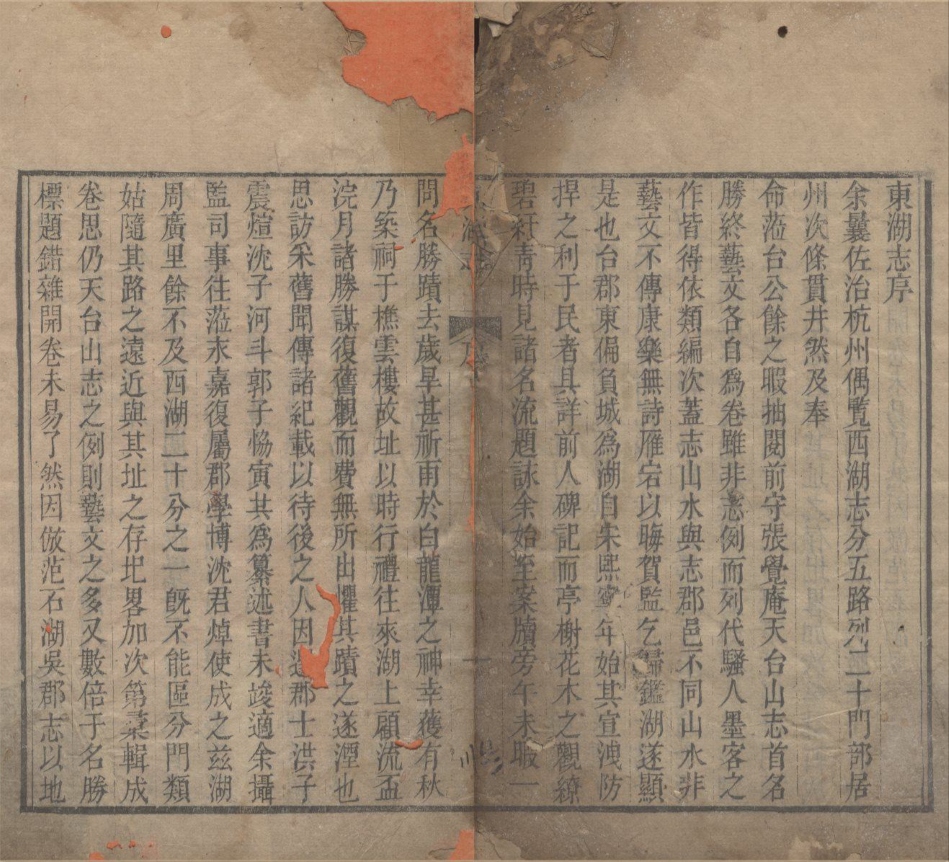 東湖志序
余曩佐治杭州偶覽西湖志分五路列二十門部居
州次條貫井然及奉
命蒞台公餘之暇抽閱前守張覺庵天台山志首名
勝終藝文各自爲卷雖非志例而列代騷人墨客之
作皆得依類編次蓋志山水與志郡邑不同山水非
藝文不傳康樂無詩雁宕以晦賀監乞歸鑑湖遂顯
是也台郡東偏負城爲湖自宋熙寧年始其宣洩防
捍之利于民者具詳前人碑記而亭榭花木之觀繚
碧紆青時見諸名流題詠余始至案牘旁午未暇一
序
一
問名勝蹟去歲旱甚祈雨於白龍潭之神幸獲有秋
乃築祠于樵雲樓故址以時行禮往來湖上顧流盃
浣月諸勝謀復舊觀而費無所出懼其蹟之遂湮也
思訪采舊聞傳諸紀載以待後之人因郡士洪子
震煊沈子河斗郭子恊寅其爲纂述書未竣適余攝
監司事往蒞永嘉復屬郡學博沈君焯使成之茲湖
周廣里餘不及西湖二十分之一旣不能區分門類
姑隨其路之遠近與其址之存圮畧加次第彚輯成
卷思仍天台山志之例則藝文之多又數倍于名勝
標題錯雜開卷未易了然因倣范石湖吳郡志以地